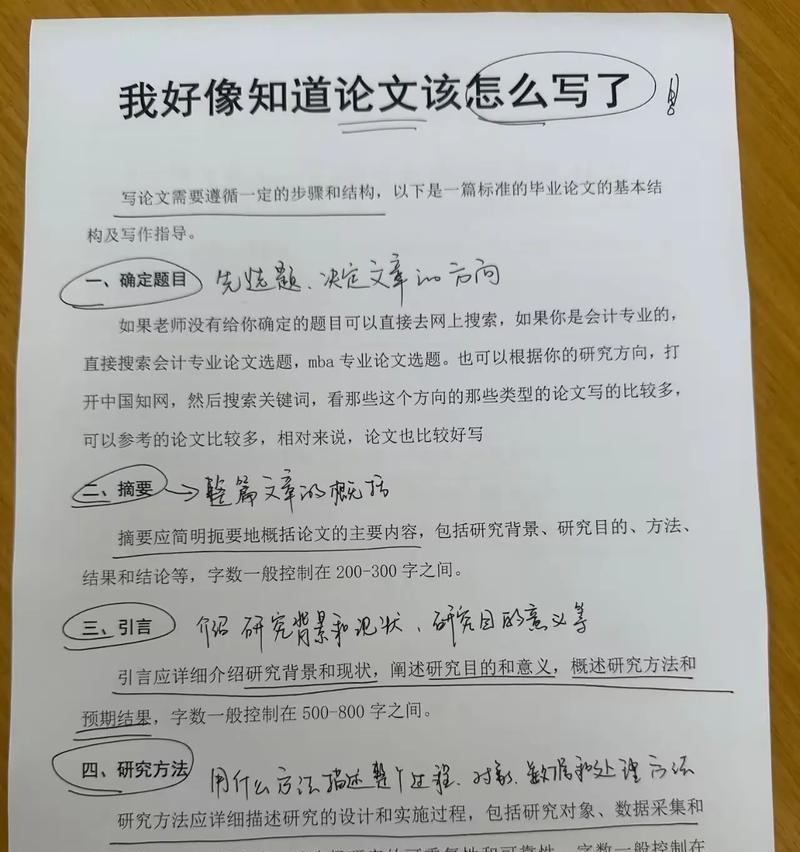 我好像知道论文该怎么写了
写论文需要遵循一定的步骤和结构，以下是一篇标准的毕业论文的基本结
构及写作指导。
一、确定题目 先选题、决定文章的方向
如果老师没有给你确定的题目可以直接去网上搜索，如果你是会计专业的，
直接搜索会计专业论文选题，mba 专业论文选题。也可以根据你的研究方向，打
开中国知网，然后搜索关键词，看那些这个方向的那些类型的论文写的比较多，
可以参考的论文比较多，相对来说，论文也比较好写
二、摘要 → 整篇文章的概括
摘要应简明扼要地概括论文的主要内容，包括研究背景、研究目的、方法、
结果和结论等，字数一般控制在 200-300 字之间。
三、引言 介绍研究背景和现状、研究目的意义等
引言应详细介绍研究背景和现状，阐述研究目的和意义，概述研究方法和
预期结果，字数一般控制在 500-800 字之间。
四、研究方法 用什么方法描述整个过程、对象、数据和处理方法
研究方法应详细描述研究的设计和实施过程，包括研究对象、数据采集和
可重复性和可靠性，字数一般控制在